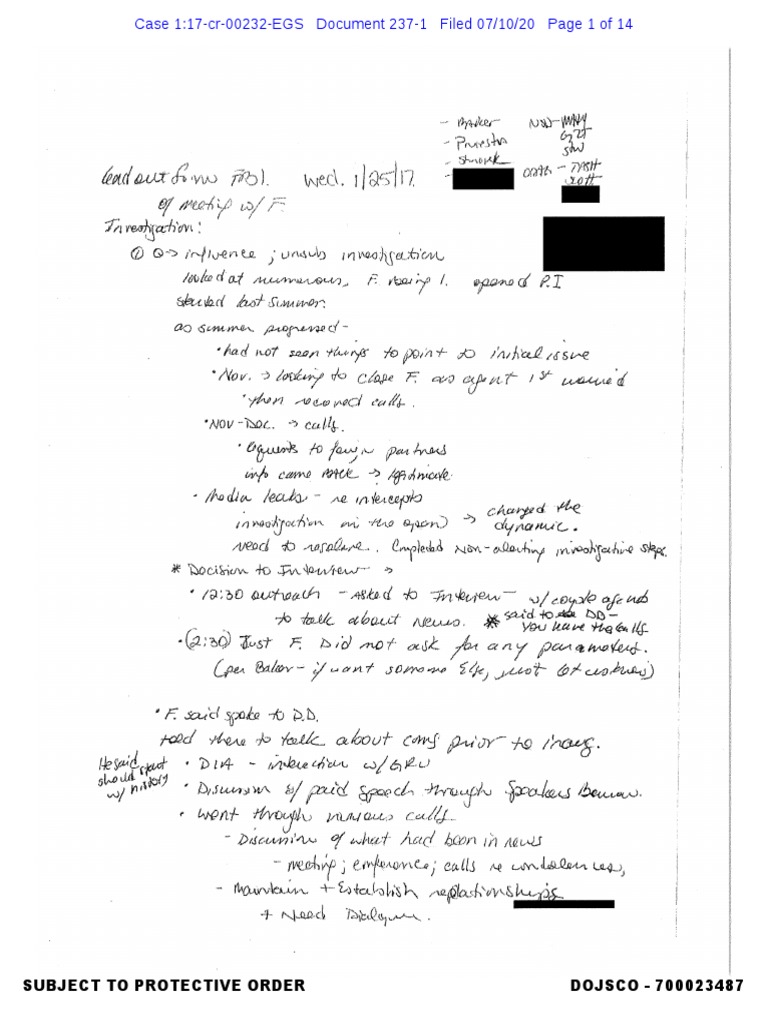 Case 1:17-cr-00232-EGS Document 237-1 Filed 07/10/20 Page 1 of 14
- Baker NSD - Mary
- Priestap G.T.
- Strzok Stu
- ODAG - TASH
Scott
Readout from FBI. Wed. 1/25/17.
of meeting w/ F.
Investigation:
① → influence ; unsub investigation
looked at numerous, F. being 1. opened P.I
started last summer.
as summer progressed -
• had not seen things to point to initial issue
• Nov. → looking to close F. as agent 1st
• then received calls.
• Nov - Dec. → calls.
• requests to foreign partners
info came back → legitimate.
• Media leaks - re intercepts
investigation in the open) → changed the dynamic.
need to resolve. Completed non-alerting investigative steps.
* Decision to Interview →
• 12:30 outreach - Asked to Interview - w/ couple agents
to talk about News. * said to DD - you have the calls
• (2:30) Just F. Did not ask for any parameters.
(per Baker - if want someone else, just let us know)
• F. said spoke to D.D.
there to talk about coms prior to inaug.
He said should start w/ history
• DIA - interaction w/ GRU
• Discussion of paid speech through Speakers Bureau.
• went through various calls -
- Discussion of what had been in news
- meeting ; conference ; calls re condolences,
- Maintain + Establish relationships
+ Need Dialogue.
SUBJECT TO PROTECTIVE ORDER
DOJSCO - 700023487